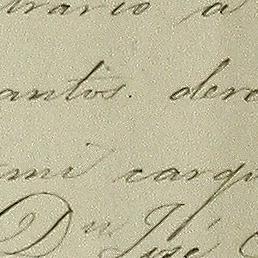 trario a
antos. dere
mi cargo
Dn José